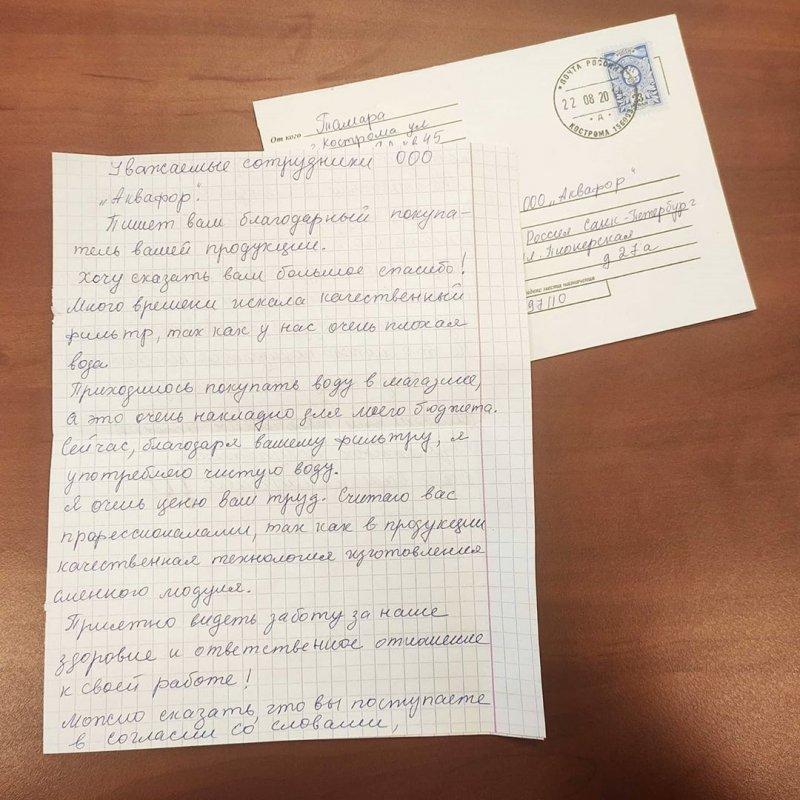 ПОЧТА РОССИИ
22 08 20
КОСТРОМА 156003
От кого Тамара
г. Кострома ул
45
ООО „Аквафор"
Россия Санк-Петербург
ул. Пионерская
д 27а
места назначения
97110
Уважаемые сотрудники ООО
„Аквафор".
Пишет вам благодарный покупа-
тель вашей продукции.
Хочу сказать вам большое спасибо!
Много времени искала качественный
фильтр, так как у нас очень плохая
вода.
Приходилось покупать воду в магазине,
а это очень накладно для моего бюджета.
Сейчас, благодаря вашему фильтру, я
употребляю чистую воду.
Я очень ценю ваш труд. Считаю вас
профессионалами, так как в продукции
качественная технология изготовления
сменного модуля.
Приятно видеть заботу за наше
здоровие и ответственное отношение
к своей работе!
Можно сказать, что вы поступаете
в согласии со словами,